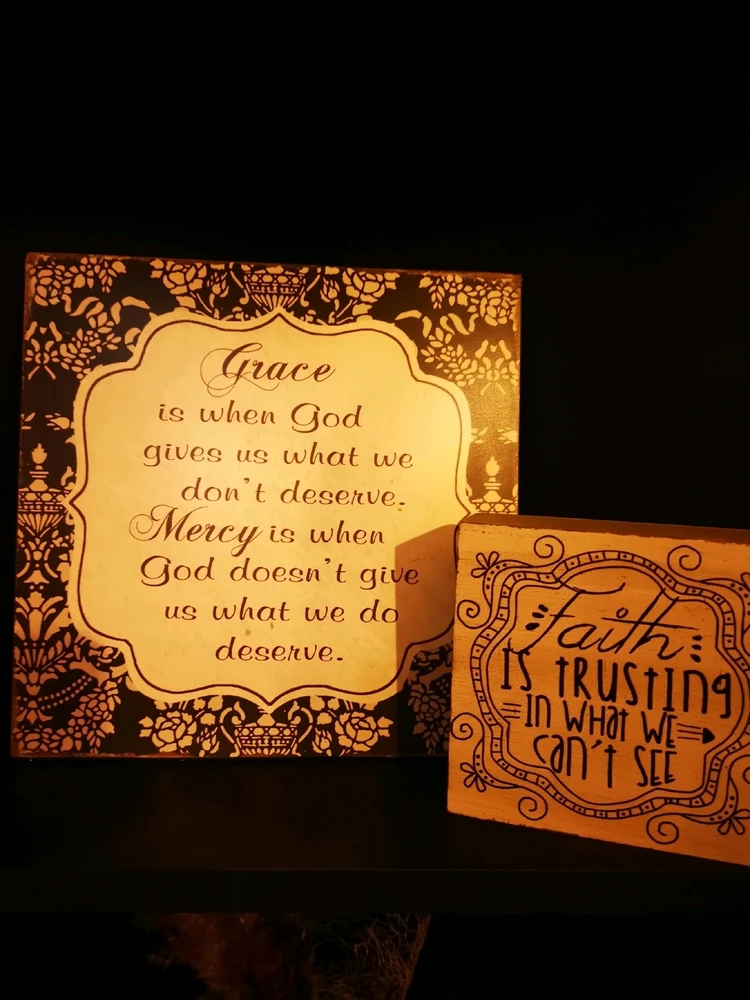 Grace
is when God
gives us what we
don't deserve.
Mercy is when
God doesn't give
us what we do
deserve.
Faith
IS tRUStINg
IN WHat WE
caN't SEE